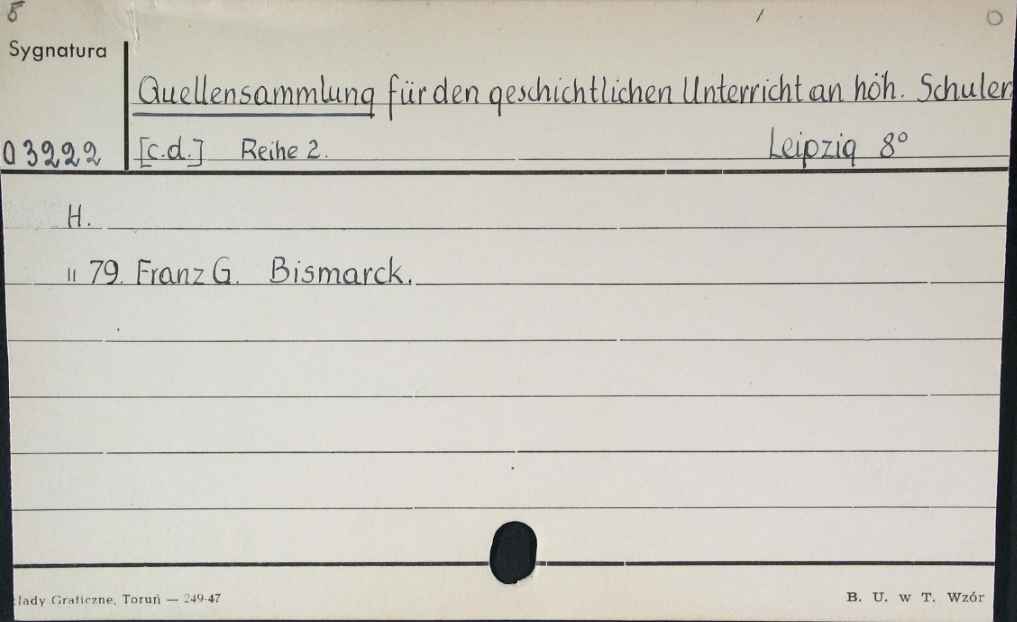 5 / O
Sygnatura
Quellensammlung für den geschichtlichen Unterricht an höh. Schulen
03222 [c.d.] Reihe 2. Leipzig 8°
H.
" 79. Franz G. Bismarck.
łady Graficzne, Toruń — 249-47 B. U. w T. Wzór